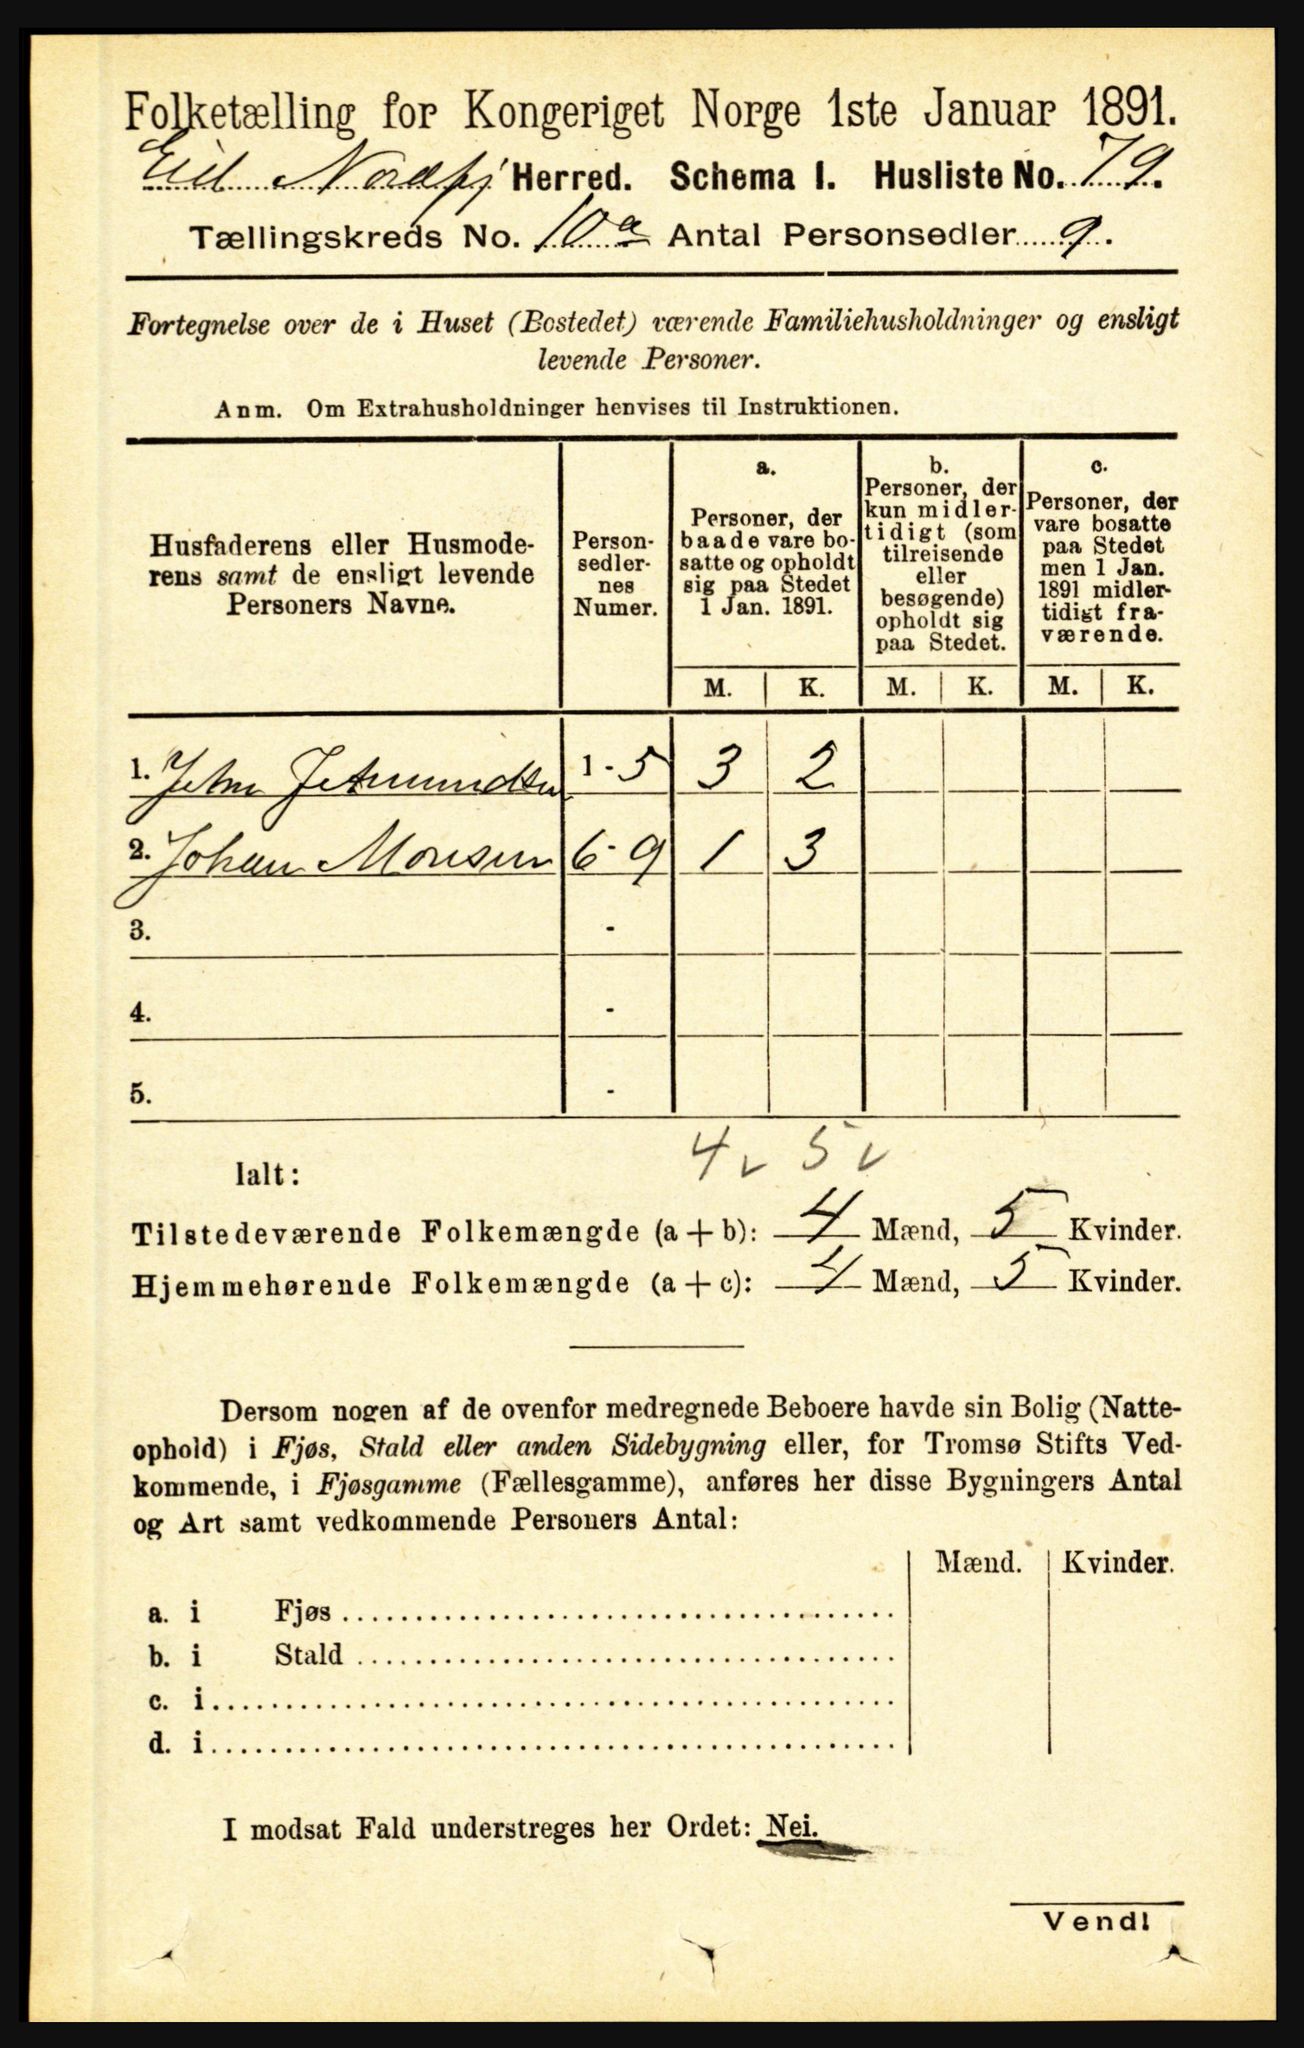 Folketælling for Kongeriget Norge 1ste Januar 1891.
Eid Nordfj Herred. Schema I. Husliste No. 79.
Tællingskreds No. 10a Antal Personsedler 9.
Fortegnelse over de i Huset (Bostedet) værende Familiehusholdninger og ensligt
levende Personer.
Anm. Om Extrahusholdninger henvises til Instruktionen.
Husfaderens eller Husmode-
rens samt de ensligt levende
Personers Navne.
Person-
sedler-
nes
Numer.
a.
Personer, der
baade vare bo-
satte og opholdt
sig paa Stedet
1 Jan. 1891.
b.
Personer, der
kun midler-
tidigt (som
tilreisende
eller
besøgende)
opholdt sig
paa Stedet.
c.
Personer, der
vare bosatte
paa Stedet
men 1 Jan.
1891 midler-
tidigt fra-
værende.
M. K. M. K. M. K.
1. John 1 - 5 3 2
2. Johan Monsen 6 - 9 1 3
3. -
4. -
5. -
4 v 5 v
Ialt:
Tilstedeværende Folkemængde (a + b): 4 Mænd, 5 Kvinder.
Hjemmehørende Folkemængde (a + c): 4 Mænd, 5 Kvinder.
Dersom nogen af de ovenfor medregnede Beboere havde sin Bolig (Natte-
ophold) i Fjøs, Stald eller anden Sidebygning eller, for Tromsø Stifts Ved-
kommende, i Fjøsgamme (Fællesgamme), anføres her disse Bygningers Antal
og Art samt vedkommende Personers Antal:
Mænd. Kvinder.
a. i Fjøs
b. i Stald
c. i
d. i
I modsat Fald understreges her Ordet: Nei.
Vend!